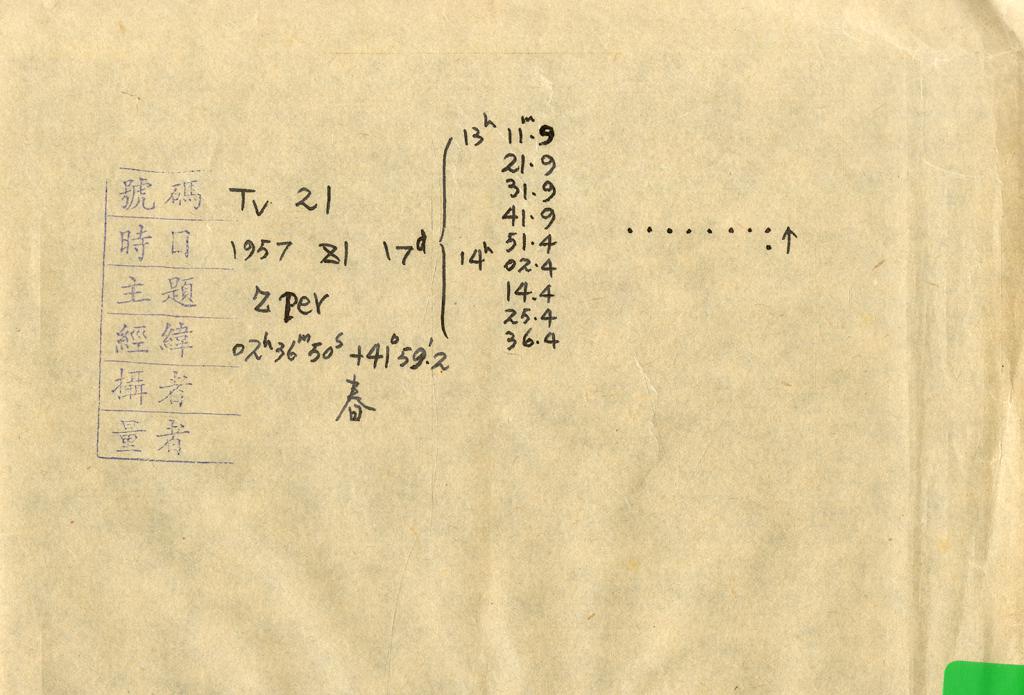 號碼 Tv 21
時日 1957 XI 17d
主題 Z per
經緯 02h36m50s +41°59'.2
攝者 春
量者
13h 11m.9
21.9
31.9
41.9
51.4
14h 02.4
14.4
25.4
36.4